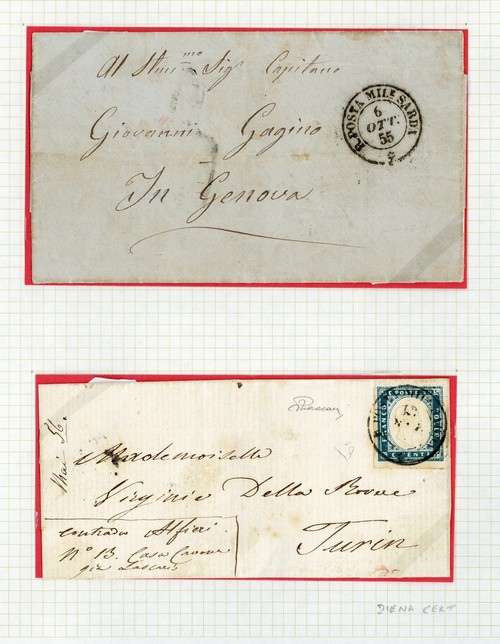 Al Stim.mo Sig.r Capitano
Giovanni Gagino
In Genova
R. POSTA MIL.E SARDA
6
OTT.
55
Mai 56.
Mademoiselle
Virginie Della Rovere
Turin
contrada Alfieri
N.o 13. Casa Cavour
già Lascaris
FRANCO
C. POSTE
BOLLO
CENT
DIENA CERT